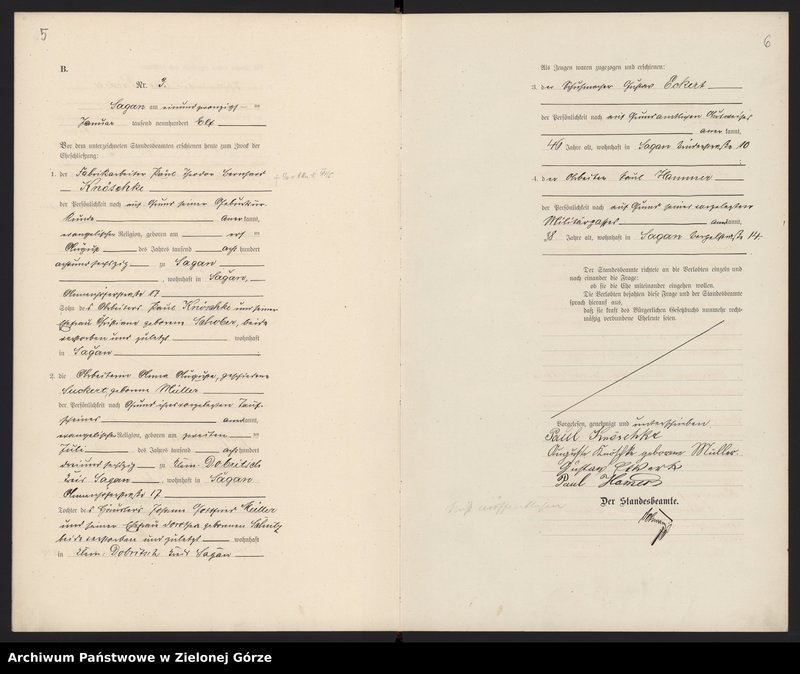 5
B.
Nr. 3.
Sagan am einundzwanzigs- ten
Januar tausend neunhundert Elf
Vor dem unterzeichneten Standesbeamten erschienen heute zum Zweck der
Eheschließung:
1. der Fabrikarbeiter Paul Theodor Bernhard
Knöschke
der Persönlichkeit nach auf Grund seiner Geburtsur-
kunde anerkannt,
evangelischer Religion, geboren am ersten
August des Jahres tausend acht hundert
achtundsechzig zu Sagan
, wohnhaft in Sagan,
17
Sohn des Arbeiters Paul Knöschke und seiner
Ehefrau Christiane geborenen beide
verstorben und zuletzt wohnhaft
in Sagan
2. die Arbeiterin Anna Auguste, geschiedene
Suckert, geborene Müller
der Persönlichkeit nach Grund ihres vorgelegten Tauf-
scheines anerkannt,
evangelischer Religion, geboren am zweiten ten
Juli des Jahres tausend acht hundert
dreiundsechzig zu Klein Dobritsch
Kreis Sagan, wohnhaft in Sagan
17
Tochter des Häuslers Johann Gottfried Müller
und seiner Ehefrau Dorothea geborenen Schulz
beide verstorben und zuletzt wohnhaft
in Klein Dobritsch Kreis Sagan
6
Als Zeugen waren zugezogen und erschienen:
3. der Schuhmacher Gustav Eckert
der Persönlichkeit nach auf Grund amtlichen Ausweises
anerkannt,
46 Jahre alt, wohnhaft in Sagan 10
4. der Arbeiter Paul Hammer
der Persönlichkeit nach auf Grund seines vorgelegten
Militärpasses anerkannt,
38 Jahre alt, wohnhaft in Sagan 14.
Der Standesbeamte richtete an die Verlobten einzeln und
nach einander die Frage:
ob sie die Ehe miteinander eingehen wollen.
Die Verlobten bejahten diese Frage und der Standesbeamte
sprach hierauf aus,
daß sie kraft des Bürgerlichen Gesetzbuchs nunmehr recht-
mäßig verbundene Eheleute seien.
Vorgelesen, genehmigt und unterschrieben
Paul Knöschke
Auguste Knöschke geborene Müller
Gustav Eckert
Paul Hamer
Der Standesbeamte.
Archiwum Państwowe w Zielonej Górze